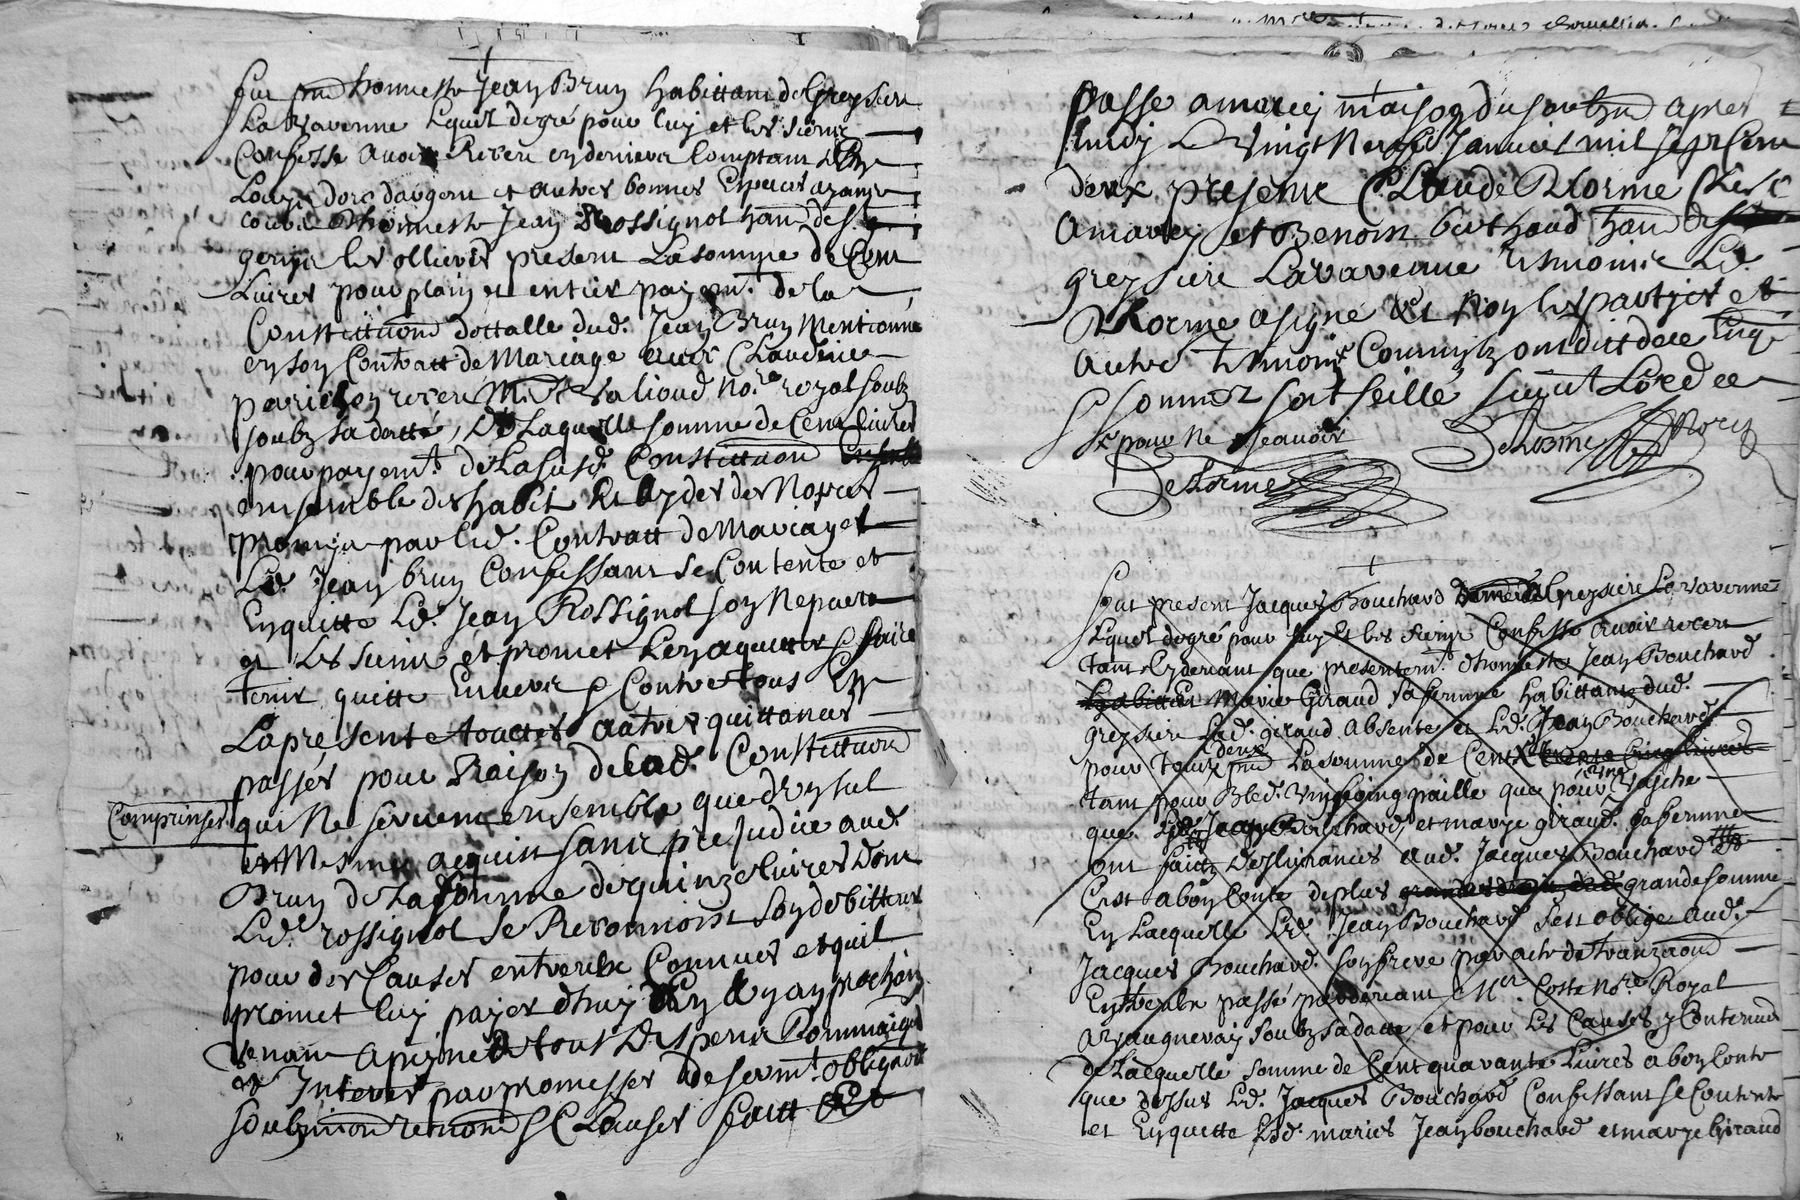 fut pnt honneste Jean Brun habittant de Greysieu
La Varenne Lequel de gré pour luy et les siens
Confesse avoir Receu en deniers Comptant
Louys dors dargent et autres bonnes Especes ayant
cours dhonneste Jean Rossignol hant de St
genis les ollieres present La somme de Cent
Livres pour plain et entier payemt de la
Constitution dottalle dud. Jean Brun Mentionné
en son Contratt de Mariage avec Claudine
receu Me Valioud nore royal soubz
soubz sa datte, De Laquelle somme de Cent livres
pour payemt de La susd. Constitution
ensemble des habit de Nopces
promis par led. Contratt de Mariage
Led. Jean brun Confessant se Contente et
Enquitte Led. Jean Rossignol son Nepveu
et Les siens et promet Len aquitter & faire
tenir quitte Envers & Contre tous En
La presente touttes autres quittances
passés pour Raison de lad. Constitution
Comprinses
qui ne serviront ensemble que dun seul
et Mesme acquist sans prejudice aud.
Brun de La somme de quinze livres dont
Led. rossignol se Recconnoist son debitteur
pour des Causes entre eux Connues et quil
promet luy payer dhuy En Un an prochain
venant a peyne de tous Despens Dommages
et Interest par promesses de sermt obligaon
soubmission renonon & Clauses faitt Et
passé a marcy maison du soubzné apres
midy Le Vingt Neuf Janvier mil sept Cent
deux presents Claude Delorme Clerc
a marcy et Benoist berthaud hant de
greysieu Lavarenne tesmoins Led.
Delorme a signé Et Non les parties et
autre tesmoins Comme ilz ont dit de ce Enq
& sommez soit seellé suyvt Lordce
& pour ne scavoir
Delorme
Delorme Nore
fut present Jacques Bouchard de Greysieu La Varenne
Lequel de gré pour luy Et les siens Confesse avoir receu
tant Cydevant que presentemt dhonneste Jean Bouchard
Et Marie Giraud sa femme habittants dud.
greysieu Lad. giraud absente et Led. Jean Bouchard
pour tous deux pnt La somme de Cent
tant pour Bled. Vin foing paille que pour une vasche
que Jean Bouchard, et marye giraud sa femme
ont faitz deslivrances aud. Jacques Bouchard
Cest a bon Conte de plus grande somme
En Lacquelle Led. Jean Bouchard sest obligé aud.
Jacques Bouchard son frere par acte de transaction
Entreulx passé pardevant Me Coste nore Royal
a Vaugneray soubz sa datte et pour Les Causes y Contenues
de Lacquelle somme de Cent quarante Livres a bon Conte
que dessus Led. Jacques Bouchard Confessant se Contente
et Enquitte Lesd. mariés Jean bouchard et marye Giraud